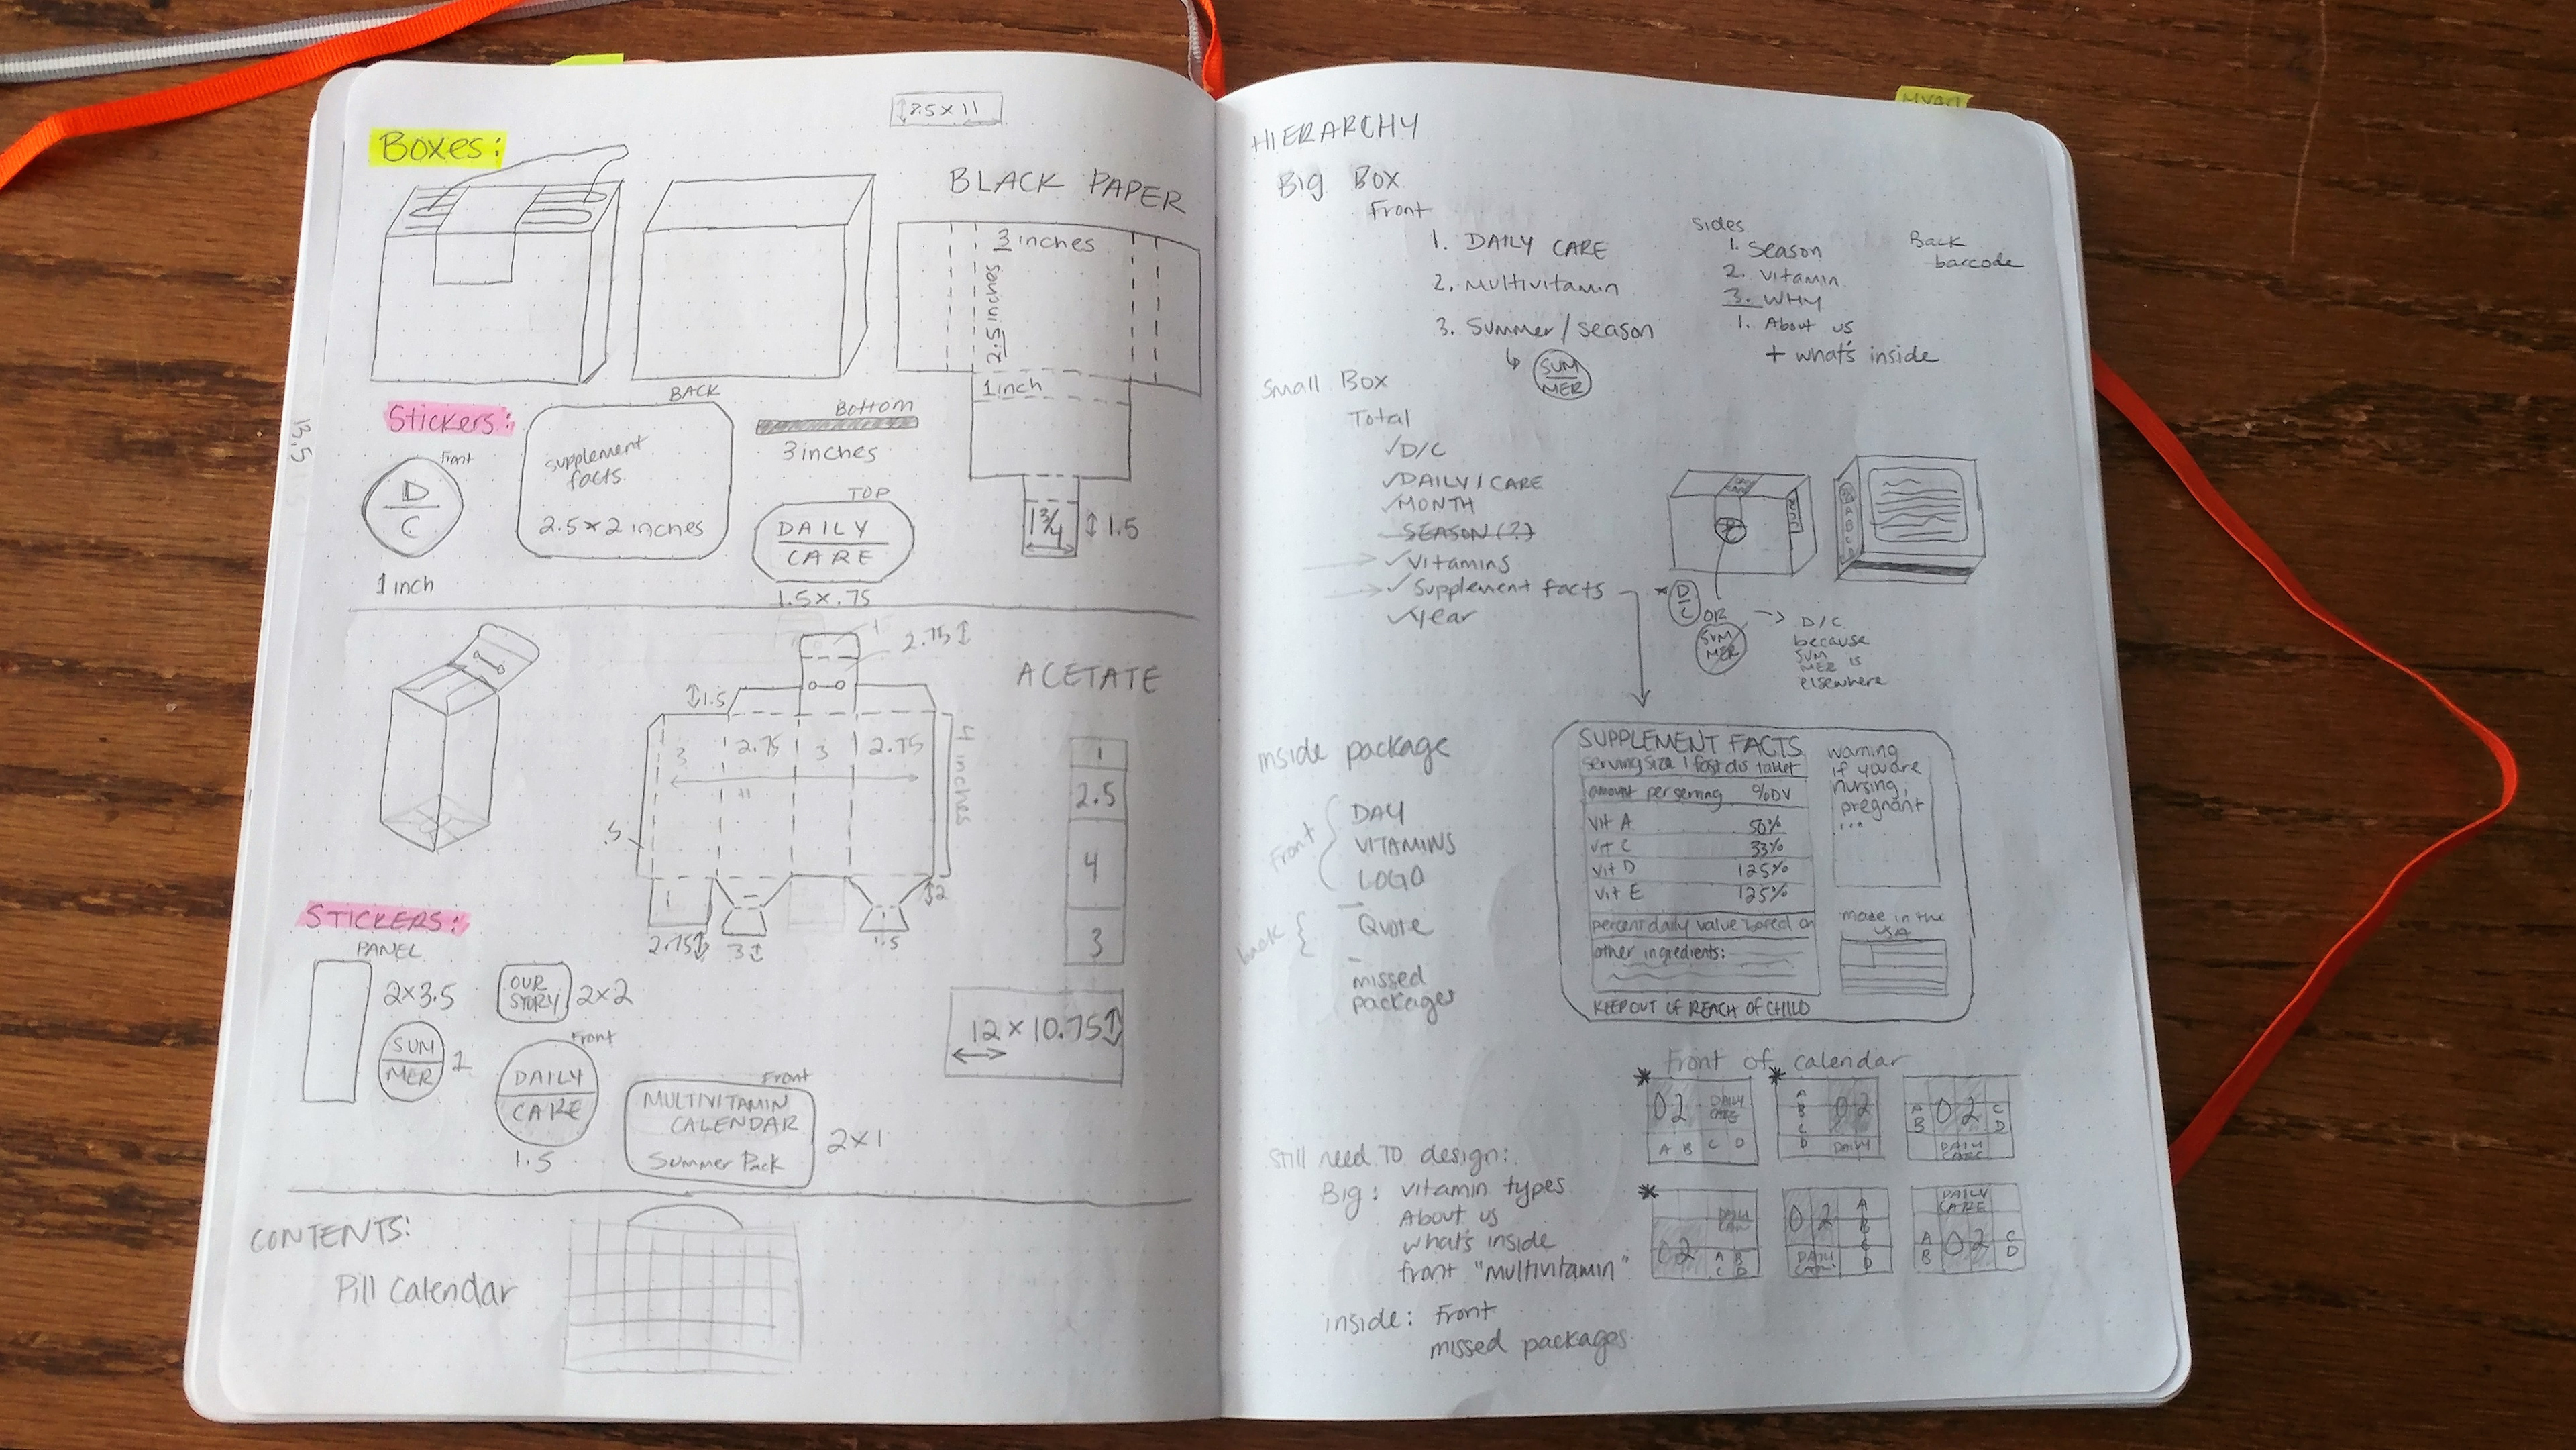 8.5 x 11
Boxes:
BLACK PAPER
3 inches
2.5 inches
1 inch
1 3/4
1.5
BACK
Stickers:
Front
D
C
1 inch
supplement
facts
2.5 x 2 inches
Bottom
3 inches
TOP
DAILY
CARE
1.5 x .75
13.5
ACETATE
1
2.75
1.5
3
2.75
3
2.75
11
4 inches
.5
1
2
2.75
3
1.5
1
2.5
4
3
12 x 10.75
STICKERS:
PANEL
2x3.5
OUR
STORY
2x2
SUM
MER
1
Front
DAILY
CARE
1.5
Front
MULTIVITAMIN
CALENDAR
Summer Pack
2x1
CONTENTS:
Pill Calendar
HIERARCHY
Big Box
Front
1. DAILY CARE
2. Multivitamin
3. Summer/season
SUM
MER
Sides
1. Season
2. Vitamin
3. WHY
1. About us
+ what's inside
Back
barcode
Small Box
Total
✓D/C
✓DAILY/CARE
✓MONTH
SEASON(?)
✓Vitamins
✓Supplement facts
✓Year
D
C
OR
SUM
MER
→ D/C
because
SUM
MER is
elsewhere
inside package
Front
DAY
VITAMINS
LOGO
back
Quote
missed
packages
SUPPLEMENT FACTS
serving size 1 fast dis tablet
amount per serving %DV
Vit A 50%
Vit C 33%
Vit D 125%
Vit E 125%
percent daily value based on
other ingredients:
KEEP OUT OF REACH OF CHILD
warning
if you are
nursing,
pregnant
...
made in the
USA
Front of calendar
02
DAILY
CARE
A B C D
A
B
C
D
02
DAILY
A
B
02
C
D
DAILY
CARE
02
A B
C D
02
A
B
C
D
DAILY
DAILY
CARE
A
B
02
C
D
Still need to design:
Big: vitamin types
About us
what's inside
front "multivitamin"
inside: Front
missed packages